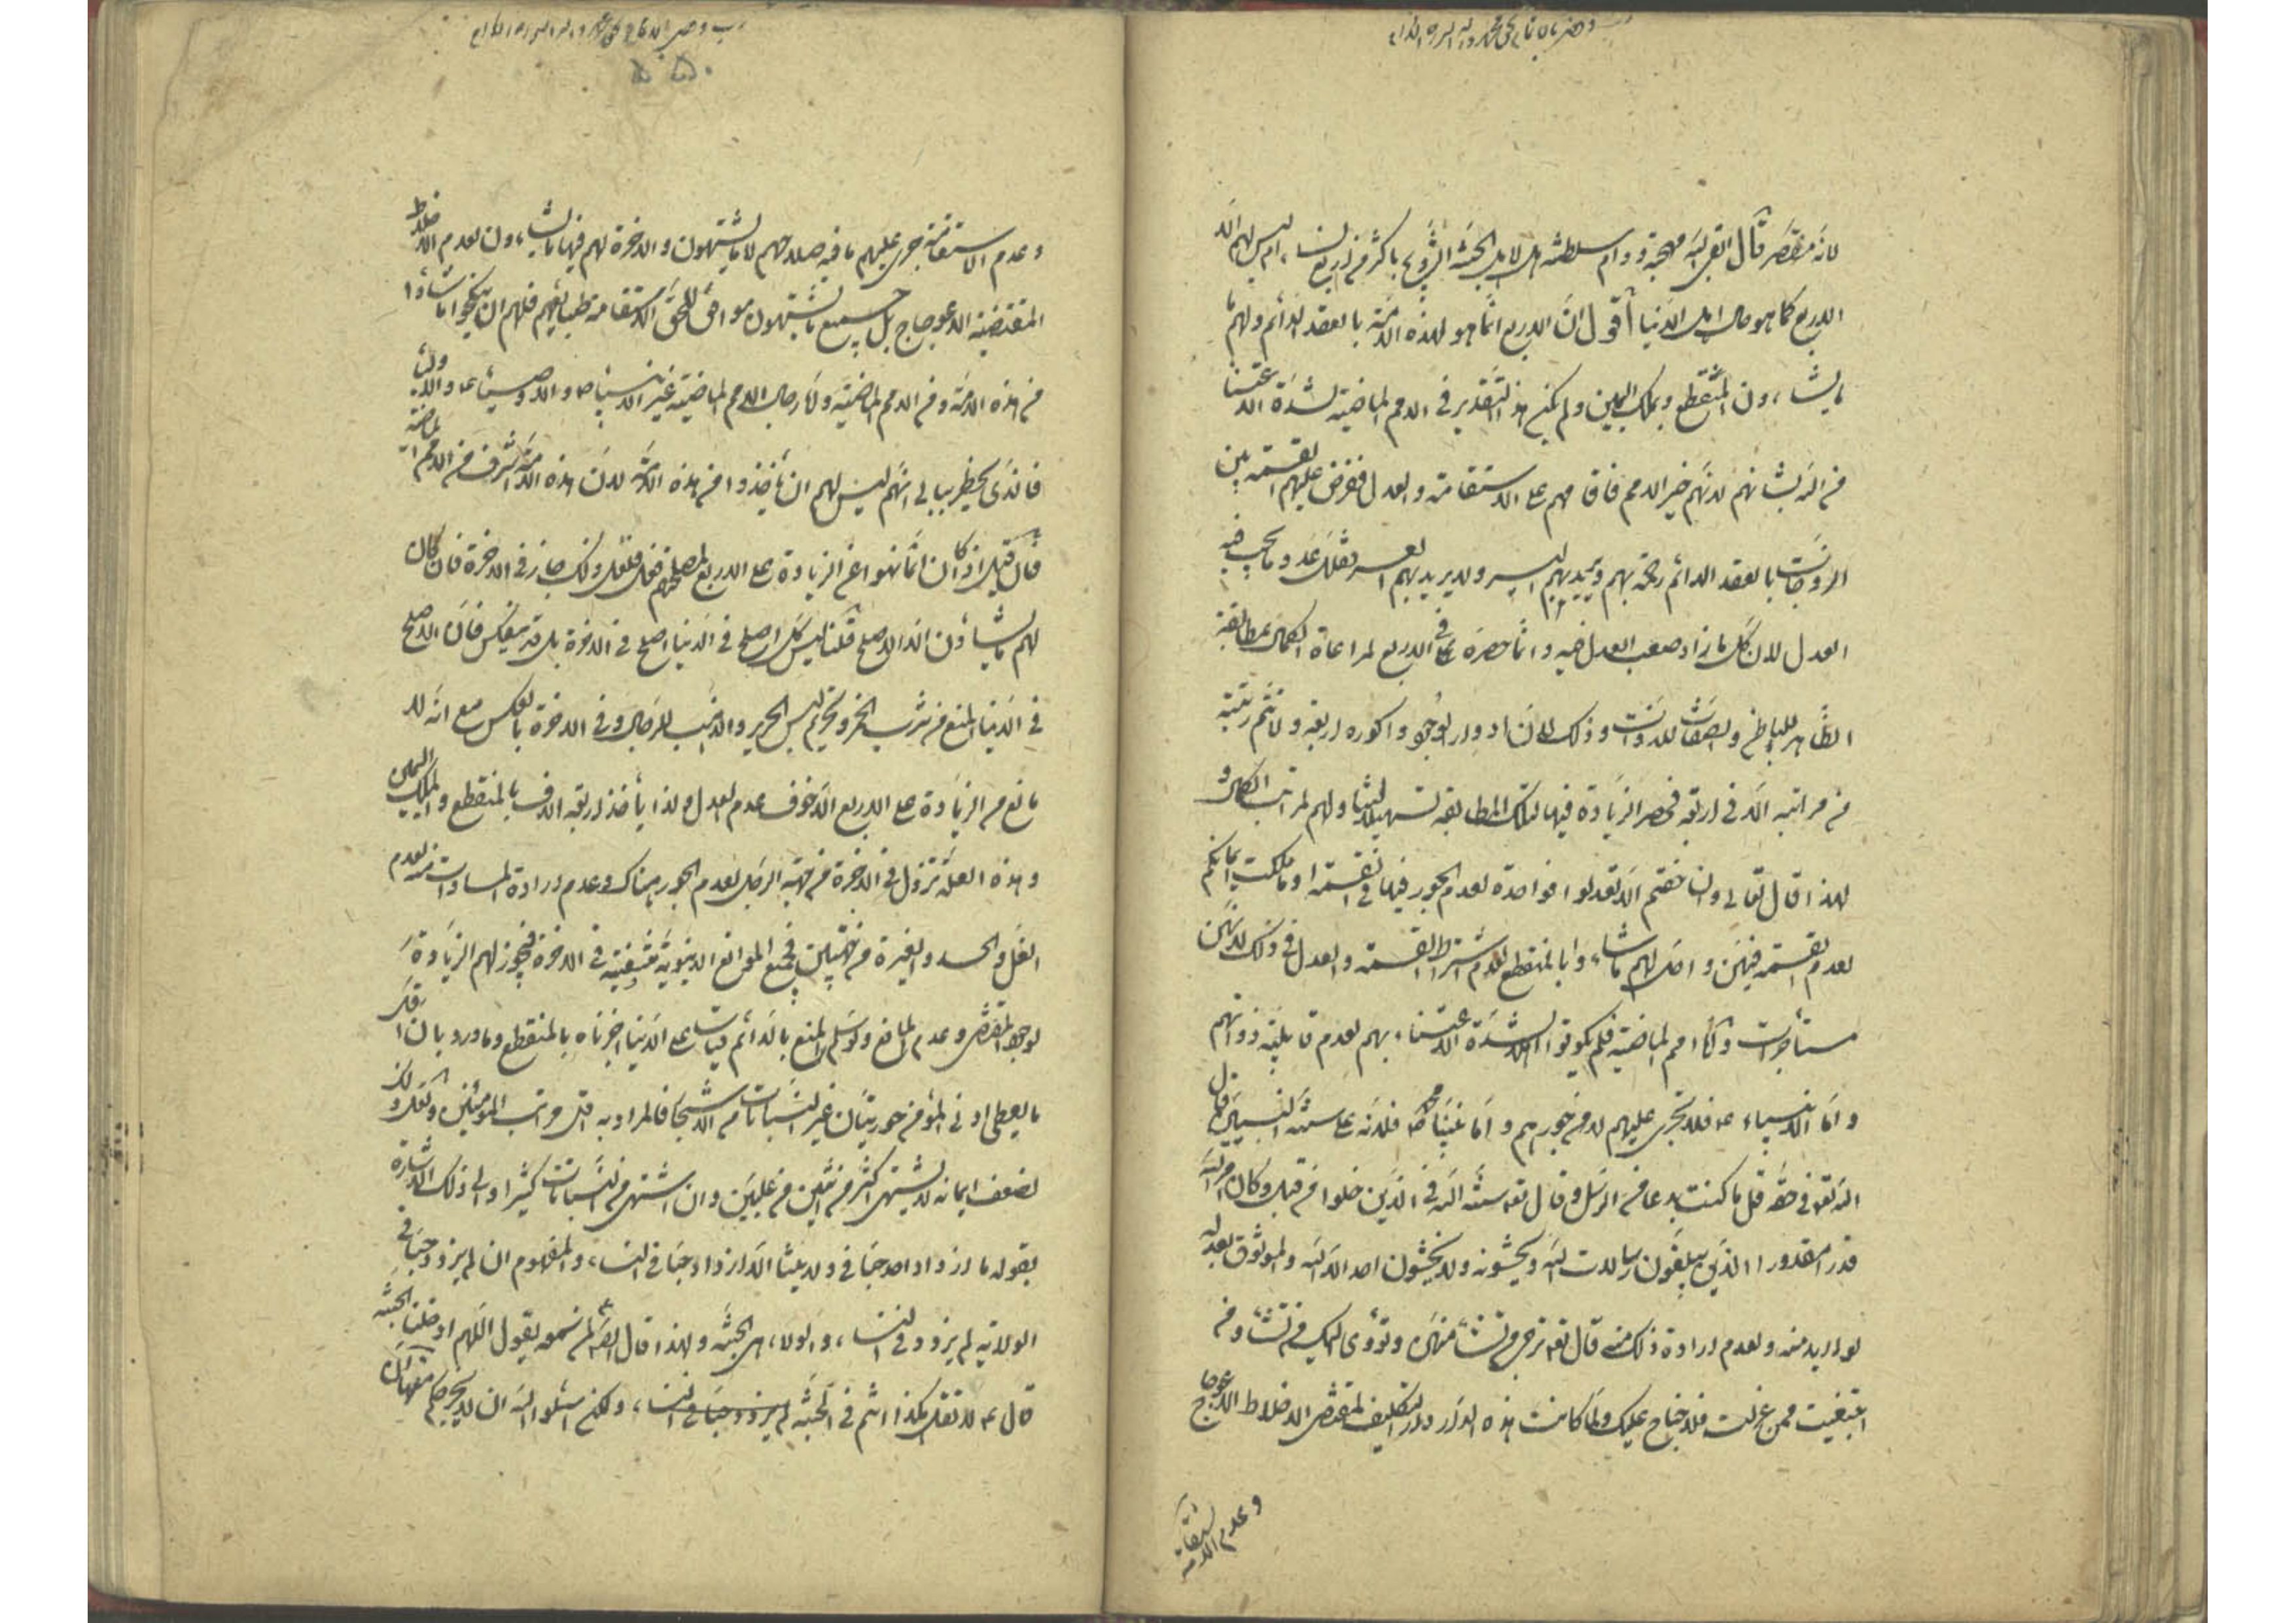 لانه مختصر قال اتقى الله مهجته ودوام سلطنته هل لاهل الجنة التزويج باكثر من اربع نساء ام ليس لهم الا
الاربع كما هو حال اهل الدنيا أقول ان الاربع انما هو لهذه الامة بالعقد الدائم ولهم ما
يشاءون بالمنقطع وبملك اليمين ولم يكن هذا التقدير في الامم الماضية لشدة الاعتناء
من الله بشانهم لانهم خير الامم فاقامهم على الاستقامة والعدل ففرض عليهم القسمة بين
الزوجات بالعقد الدائم رحمة بهم ويريد بهم اليسر ولا يريد بهم العسر فقلل عدد ما يجب فيه
العدل لان كل ما زاد صعب العدل فيه وانما حصره في الاربع لمراعاة الكمال بمطابقة
الظاهر للباطن والصفات للذوات وذلك لان ادوار الوجود واكواره اربعة ولا تتم رتبة
من مراتبه الا في اربعة فحصر الزيادة فيها لتلك المطابقة تسهيلا لهم ولهم مراتب الكمال و
لهذا قال تعالى وان خفتم الا تعدلوا فواحدة لعدم الجور فيها في القسمة او ما ملكت ايمانكم
لعدم القسمة فيهن واحل لهم ما شاءوا بالمنقطع لعدم اشتراط القسمة والعدل في ذلك لانهن
مستأجرات واما الامم الماضية فلم يكونوا اهلا لشدة الاعتناء بهم لعدم قابلية ذواتهم
واما الانبياء ع فلا تجري عليهم لامن جورهم واما نبينا محمد ص فلانه على سنة النبيين قال
الله تعالى في حقه قل ما كنت بدعا من الرسل وقال تعالى سنة الله في الذين خلوا من قبل وكان امر الله
قدرا مقدورا الذين يبلغون رسالات الله ويخشونه ولا يخشون احدا الا الله وللوثوق بعدله
لو اريد منه ولعدم ارادة ذلك منه قال تعالى ترجي من تشاء منهن وتؤوي اليك من تشاء ومن
ابتغيت ممن عزلت فلا جناح عليك ولما كانت هذه الدار دار التكليف لمقتضى الاخلاط الاعوجاج
وعدم الاستقامة
وعدم الاستقامة جرى عليهم ما فيه صلاحهم لا ما يشتهون والاخرة لهم فيها ما يشاءون لعدم الاخلاط
المقتضية للاعوجاج بل جميع ما يشتهون موافق للحق لاستقامة طبايعهم فلهم ان ينكحوا ما شاؤا
من هذه الامة ومن الامم الماضية واما رجال الامم الماضية غير الانبياء ص والاوصياء ع والاولياء
فالذي يخطر ببالي انهم ليس لهم ان يأخذوا من هذه الامة لان هذه الامة اشرف من الامم الماضية
قال قيل اذا كان انما نهوا عن الزيادة على الاربع لمصلحتهم فهل ذلك جاز في الاخرة فان كان
لهم ما يشاؤن الا الاصلح قلنا ليس كل اصلح في الدنيا اصلح في الاخرة بل قد ينعكس فان الاصلح
في الدنيا المنع من شرب الخمر وتحريم لبس الحرير والذهب للرجال وفي الاخرة بالعكس مع انه لا
مانع من الزيادة على الاربع الا خوف عدم العدل ولذا يأخذ اربعة الاف بالمنقطع والملك اليمين
وهذه العلة تزول في الاخرة من جهة الرجل لعدم الجور هناك وعدم ارادة المساوات منه لعدم
الغل والحسد والغيرة من جهتهن فجميع الموانع الدنيوية منتفية في الاخرة فيجوز لهم الزيادة
لوجود المقتضي وعدم المانع ولو سلم المنع بالدائم قياسا على الدنيا اجزناه بالمنقطع وما ورد بان اقل
ما يعطى ادنى المؤمن حوريتان غير النسيات من الاشباح فالمراد به اقل مراتب المؤمنين وذلك
لضعف ايمانه لا يشتهي اكثر من ثنتين من عليين وان اشتهى من النسيات كثيرا والى ذلك الاشارة
بقوله ما ازداد احد حبا في ولايتنا الا ازداد حبا في النساء والمفهوم ان لم يزدد حبا في
الولاية لم يزدد في النساء والولاء هي الجنة ولهذا قال الصادق ع لمن سمعه يقول اللهم ادخلنا الجنة
قال ع لا تقل هكذا انتم في الجنة لم يزدد حبا في النساء ولكن اسئلوا الله ان لا يخرجكم منها